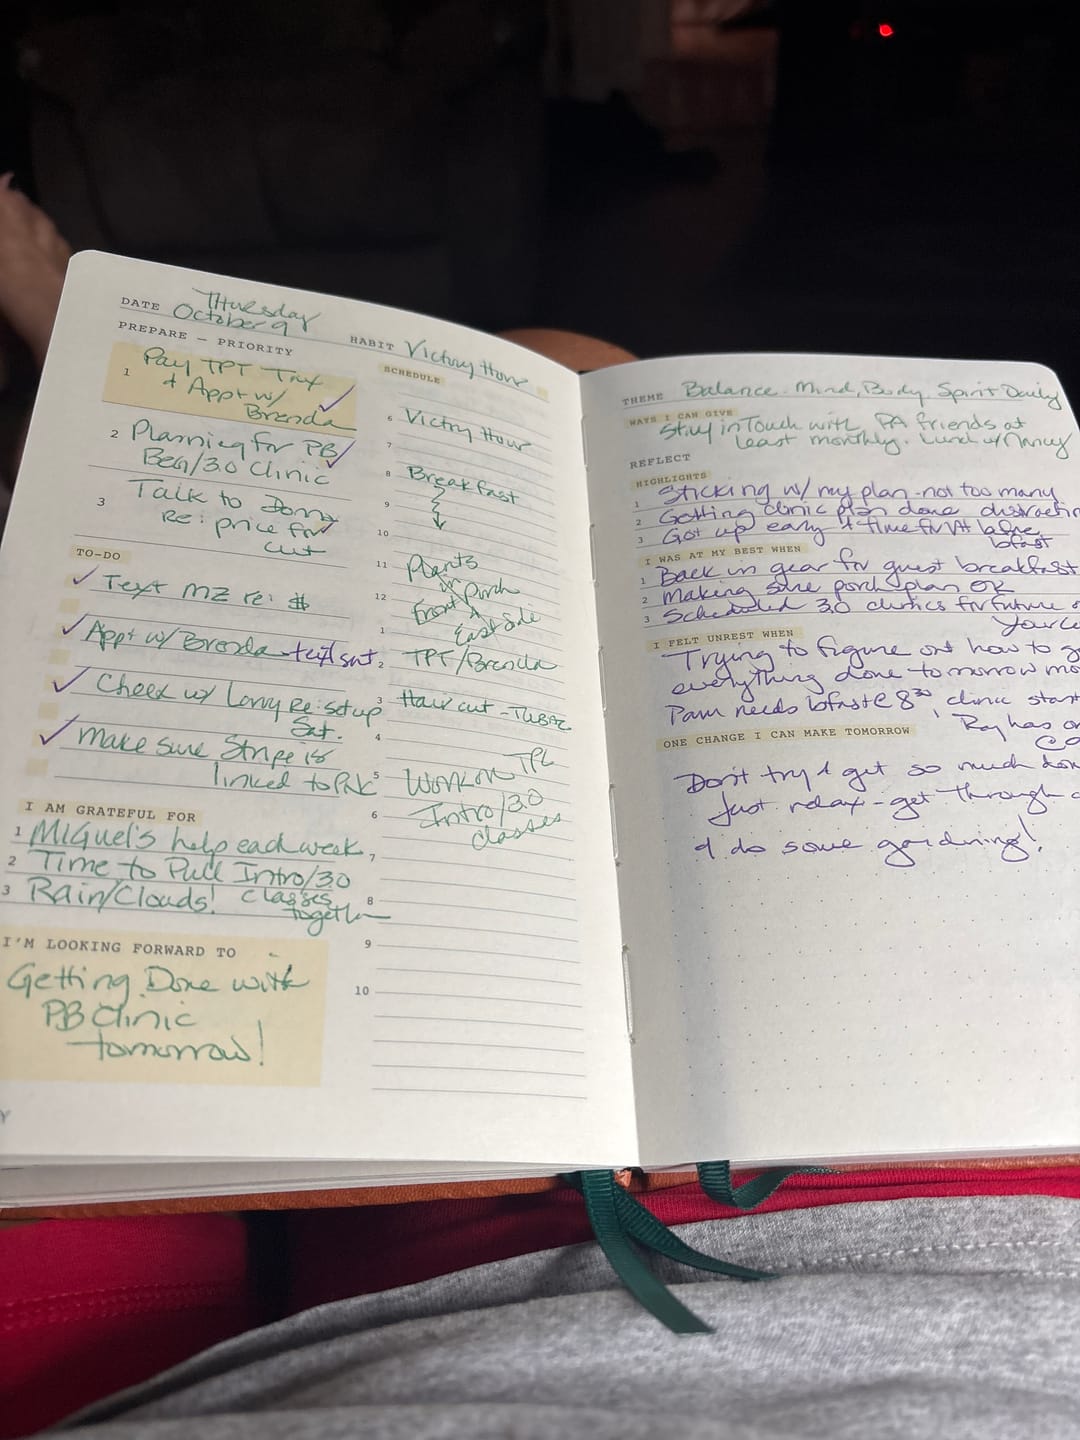 DATE Thursday
October 9
PREPARE – PRIORITY
1 Pay TPT Tax
+ Appt w/
Brenda
2 Planning for PB
Beg/3.0 Clinic
3 Talk to Donny
Re: price for
cut
TO-DO
Text MZ re: $
Appt w/ Brenda - text sent
Check w/ Larry Re: setup
Sat.
Make sure Stripe is
linked to PNC
I AM GRATEFUL FOR
1 Miguel's help each week
2 Time to Pull Intro/3.0
classes
together
3 Rain/Clouds!
I'M LOOKING FORWARD TO
Getting Done with
PB Clinic
tomorrow!
HABIT Victory Hour
SCHEDULE
6 Victory Hour
7
8 Breakfast
9
10
11 Plants
in Porch
12 Front +
1 East side
2 TPT/Brenda
3 Haircut -
4
5 Work on
6 Intro/3.0
classes
7
8
9
10
THEME Balance. Mind, Body, Spirit Daily
WAYS I CAN GIVE
Stay in Touch with PA friends at
least monthly. Lunch w/ Nancy
REFLECT
HIGHLIGHTS
1 Sticking w/ my plan - not too many
2 Getting clinic plan done
3 Got up early + time for VH before
bfast
I WAS AT MY BEST WHEN
1 Back in gear for guest breakfast
2 Making sure porch plan OK
3 Scheduled 3.0 clinics for future
I FELT UNREST WHEN
Trying to figure out how to
everything done tomorrow
Pam needs bfast @ 8³⁰, clinic
Ray has
ONE CHANGE I CAN MAKE TOMORROW
Don't try + get so much done
Just relax - get through
+ do some gardening!